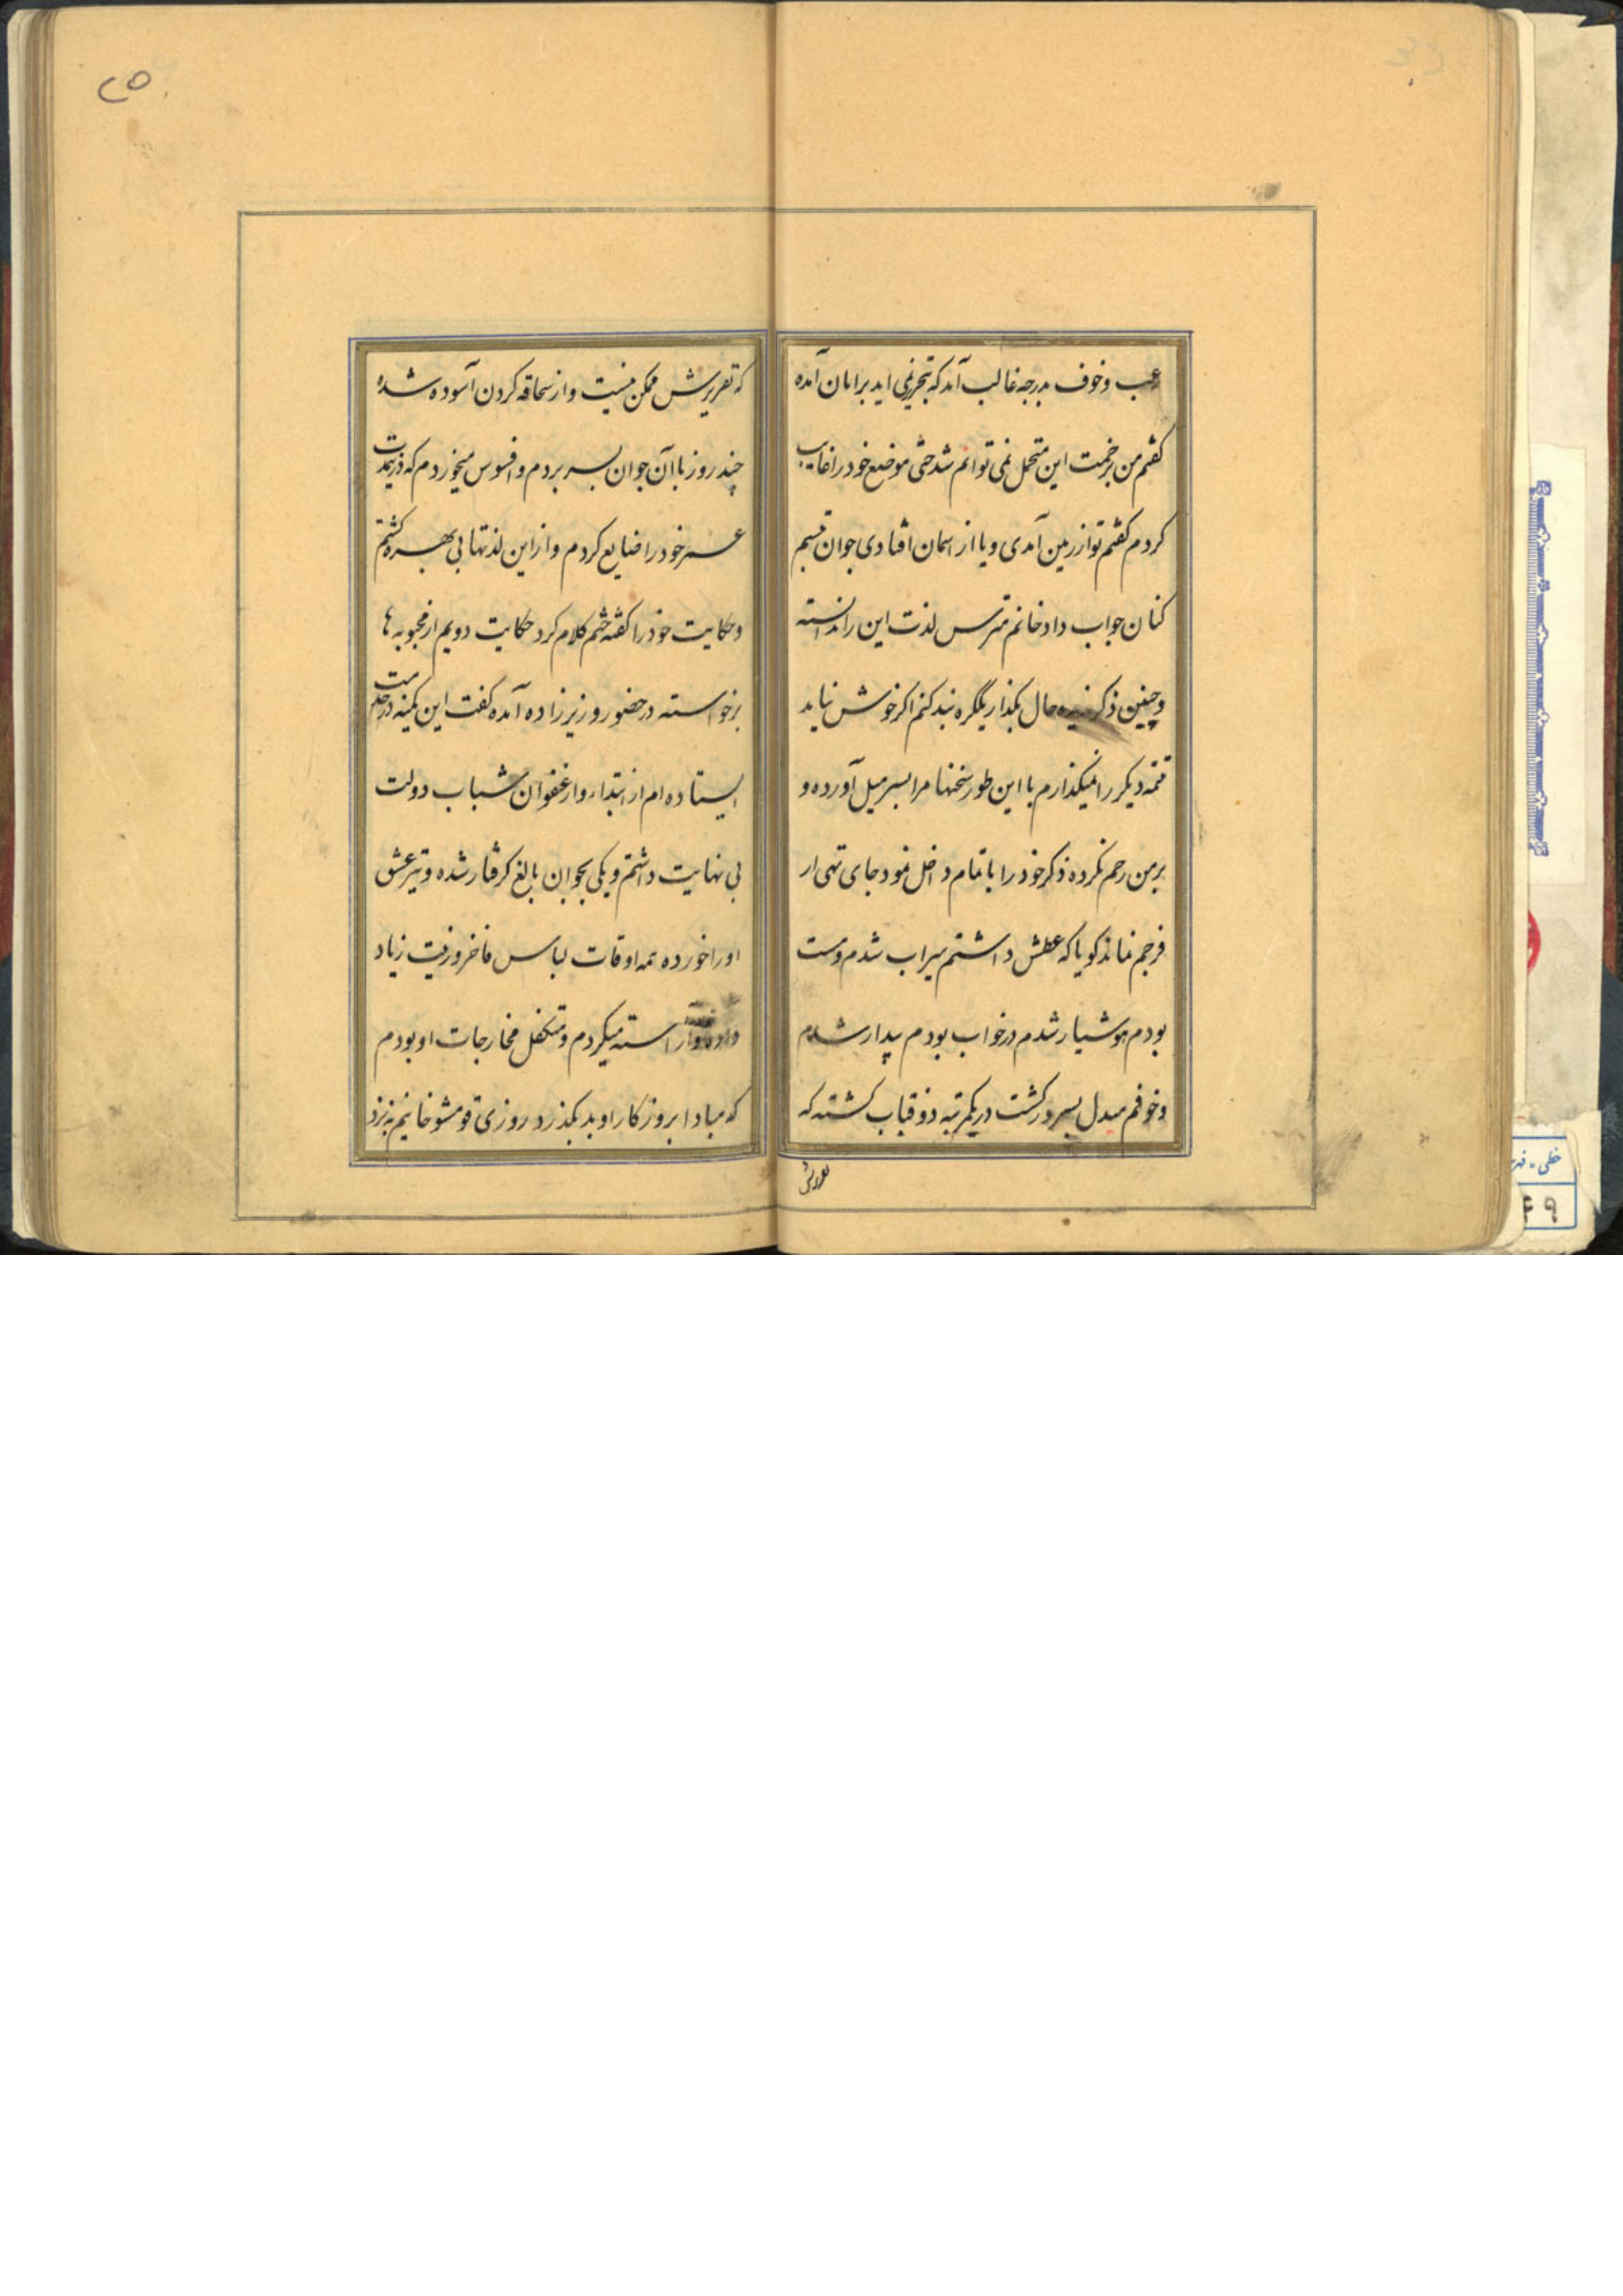 رعب و خوف بدرجه غالب آمد که بتحریر نمی اید برامان آمده
کفتم من برخمت این متحمل نمی توانم شد حتی موضع خود را غایب
کردم کفتم تو از زمین آمدی و یا از اسمان افتادی جوان تبسم
کنان جواب داد خانم مترس لذت این را ندانسته
و چنین ذکر حال بکذار یکگره بند کنم اکر خوش نیاید
تتمه دیکر را نمیکذارم با این طور سخنها مرا بسر میل آورده و
بر من رحم نکرده ذکر خود را با تمام داخل نمود جای تهی از
فرجم نماند کویا که عطش داشتم سیراب شدم و مست
بودم هوشیار شدم در خواب بودم بیدار شدم
و خوفم مبدل بسرور کشت در یکمرتبه ذوقیاب کشته که
که تقریرش ممکن نیست و از سحاقه کردن آسوده شده
چند روز با آن جوان بسر بردم و افسوس میخوردم که در نیمدت
عمر خود را ضایع کردم و از این لذتها بی بهره کشتم
و حکایت خود را کفته ختم کلام کرد حکایت دویم از محبوبه ها
برخواسته در حضور وزیر زاده آمده کفت این کمینه در خدمت
ایستاده ام از ابتداء و از عنفوان شباب دولت
بی نهایت داشتم و بیکی بجوان بالغ کرفتار شده و تیر عشق
او را خورده همه اوقات لباس فاخر و زینت زیاد
آراسته میکردم و متکفل مخارجات او بودم
که مبادا بروز کار او بد بکذرد روزی قومشو خانیم به نزد
۲۵
خطی
۴۹